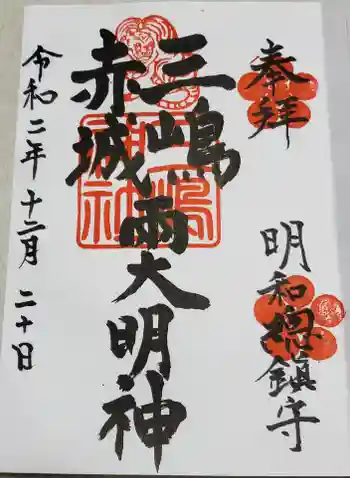 奉拝
明和總鎮守
三嶋
赤城
両大明神
令和二年十二月二十日